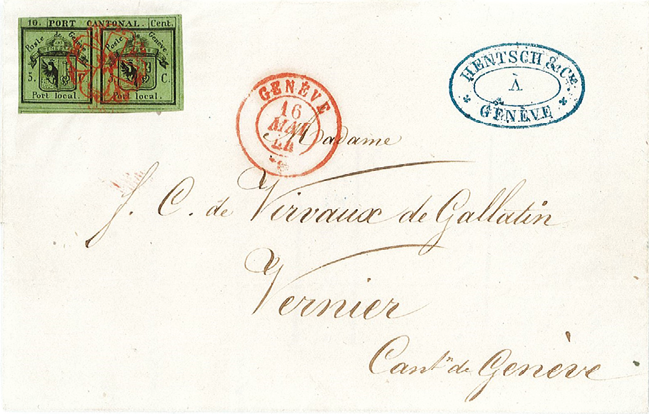 10. PORT CANTONAL. Cent.
Poste de Genève Poste de Genève
5. C
Port local. Port local.
HENTSCH & Cie.
À
GENÈVE
GENÈVE
16
MAI
44
Madame
J. C. de Virvaux de Gallatin
Vernier
Cant.n de Genève